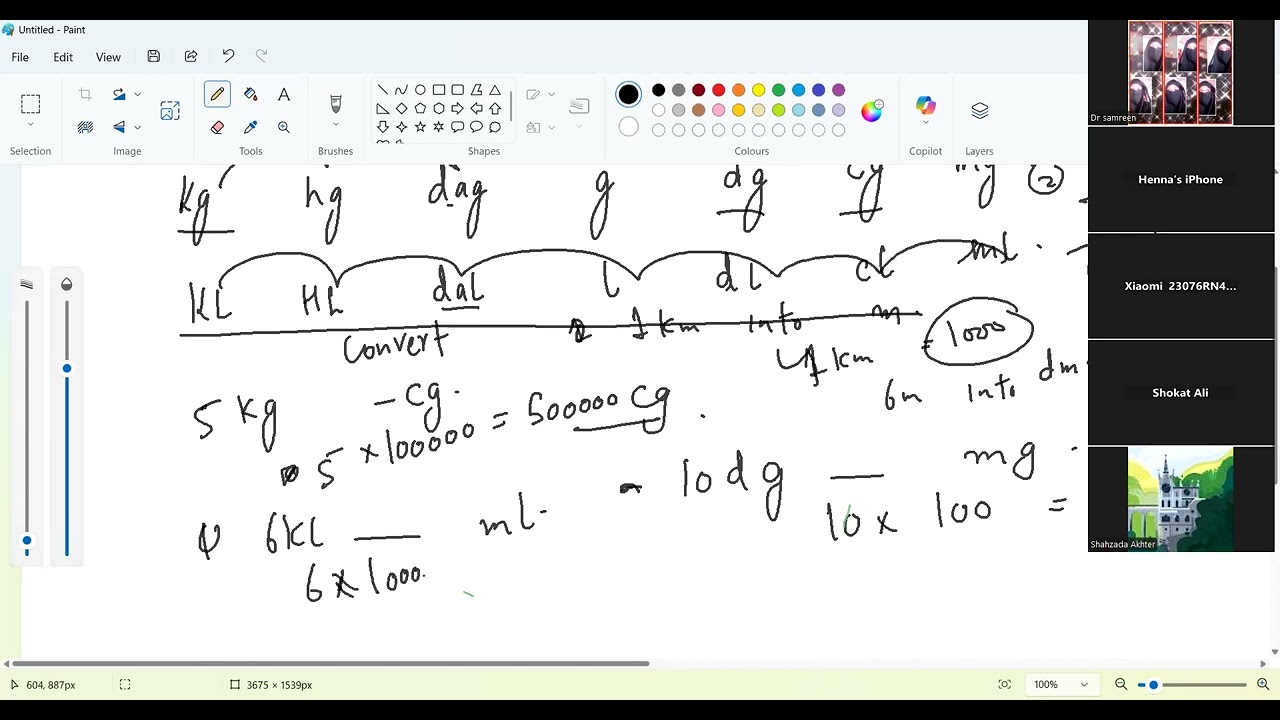 Untitled - Paint
File Edit View
Selection Image Tools Brushes Shapes Colours Copilot Layers
kg hg dag g dg cg mg 2
KL HL daL l dl cl ml.
Convert 1 km into m
1 km = 1000
6m into dm
5 kg - cg.
5 x 100000 = 500000 cg.
10 dg __ mg.
10 x 100 =
6 KL __ ml.
6 x 1000.
Dr samreen
Henna's iPhone
Xiaomi 23076RN4...
Shokat Ali
Shahzada Akhter
604, 887px
3675 × 1539px
100%